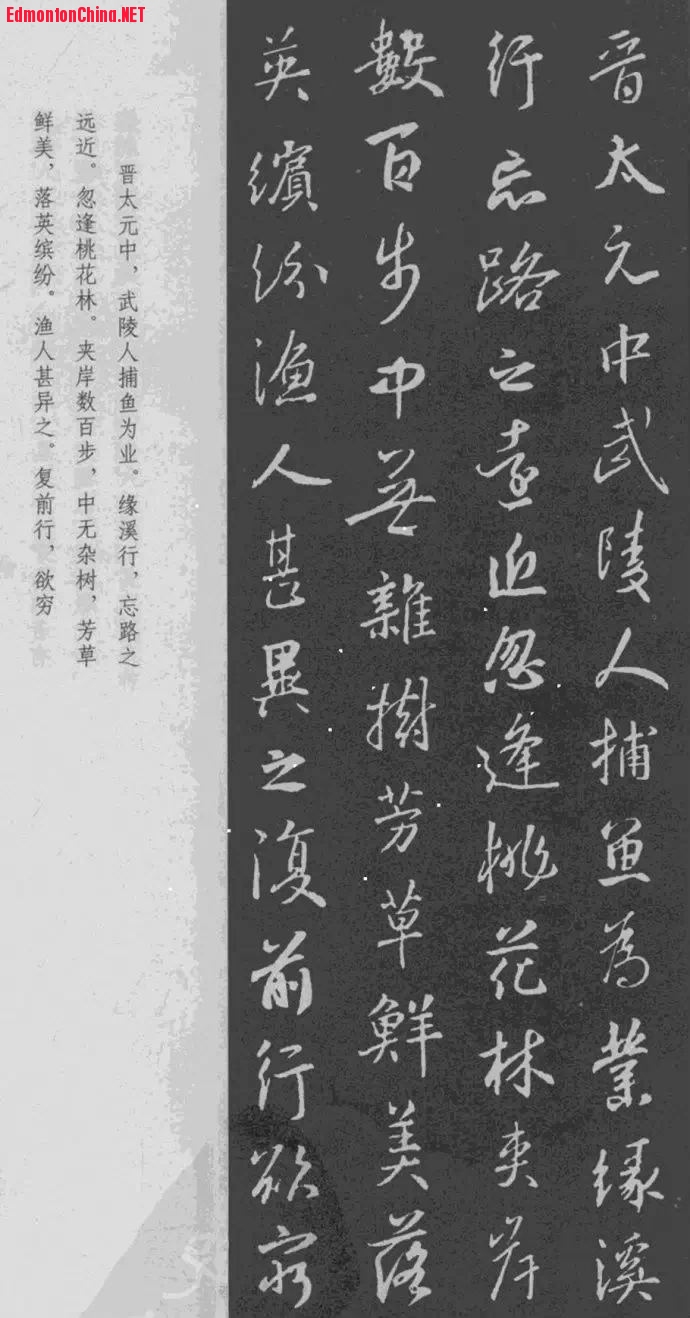 EdmontonChina.NET
晉太元中武陵人捕魚為業緣溪
行忘路之遠近忽逢桃花林夾岸
數百步中無雜樹芳草鮮美落
英繽紛漁人甚異之復前行欲窮
晋太元中，武陵人捕鱼为业。缘溪行，忘路之
远近。忽逢桃花林。夹岸数百步，中无杂树，芳草
鲜美，落英缤纷。渔人甚异之。复前行，欲穷